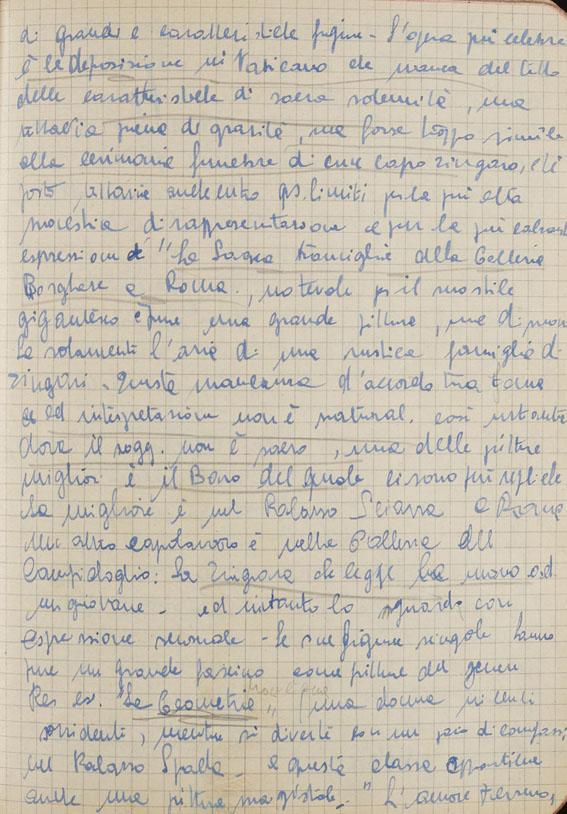 di grandi e caratteristiche figure - L'opera più celebre
è la Deposizione in Vaticano che manca del tutto
delle caratteristiche di sacra solennità, ma
tuttavia piena di gravità, ma forse troppo simile
alla cerimonia funebre di un capo zingaro, e li
posta tuttavia anche entro gli limiti per la più alta
di rappresentazione e per la più
espressione "La Sacra Famiglia della Galleria
Borghese a Roma., notevole p il suo stile
gigantesco è pure una grande pittura, ma di nuovo
ha solamente l'aria di una rustica famiglia di
zingari. Questa mancanza d'accordo tra forma
ed interpretazione non è natural. così
dove il sogg. non è sacro, una delle pitture
migliori è il Baro del quale ci sono più repliche
La migliore è nel Palazzo Sciarra a Roma
Un altro capolavoro è nella Galleria del
Campidoglio: La Zingara che legge la mano ad
un giovane - ed intanto lo sguarda con
espressione sensuale - Le sue figure singole hanno
pure un grande fascino come pitture del genere
Per es. "La Geometria" una donna in cenci
sorridenti, mentre si diverte con un paio di compassi
nel Palazzo Spada - a questa classe appartiene
anche una pittura magistrale - "L'amore terreno,